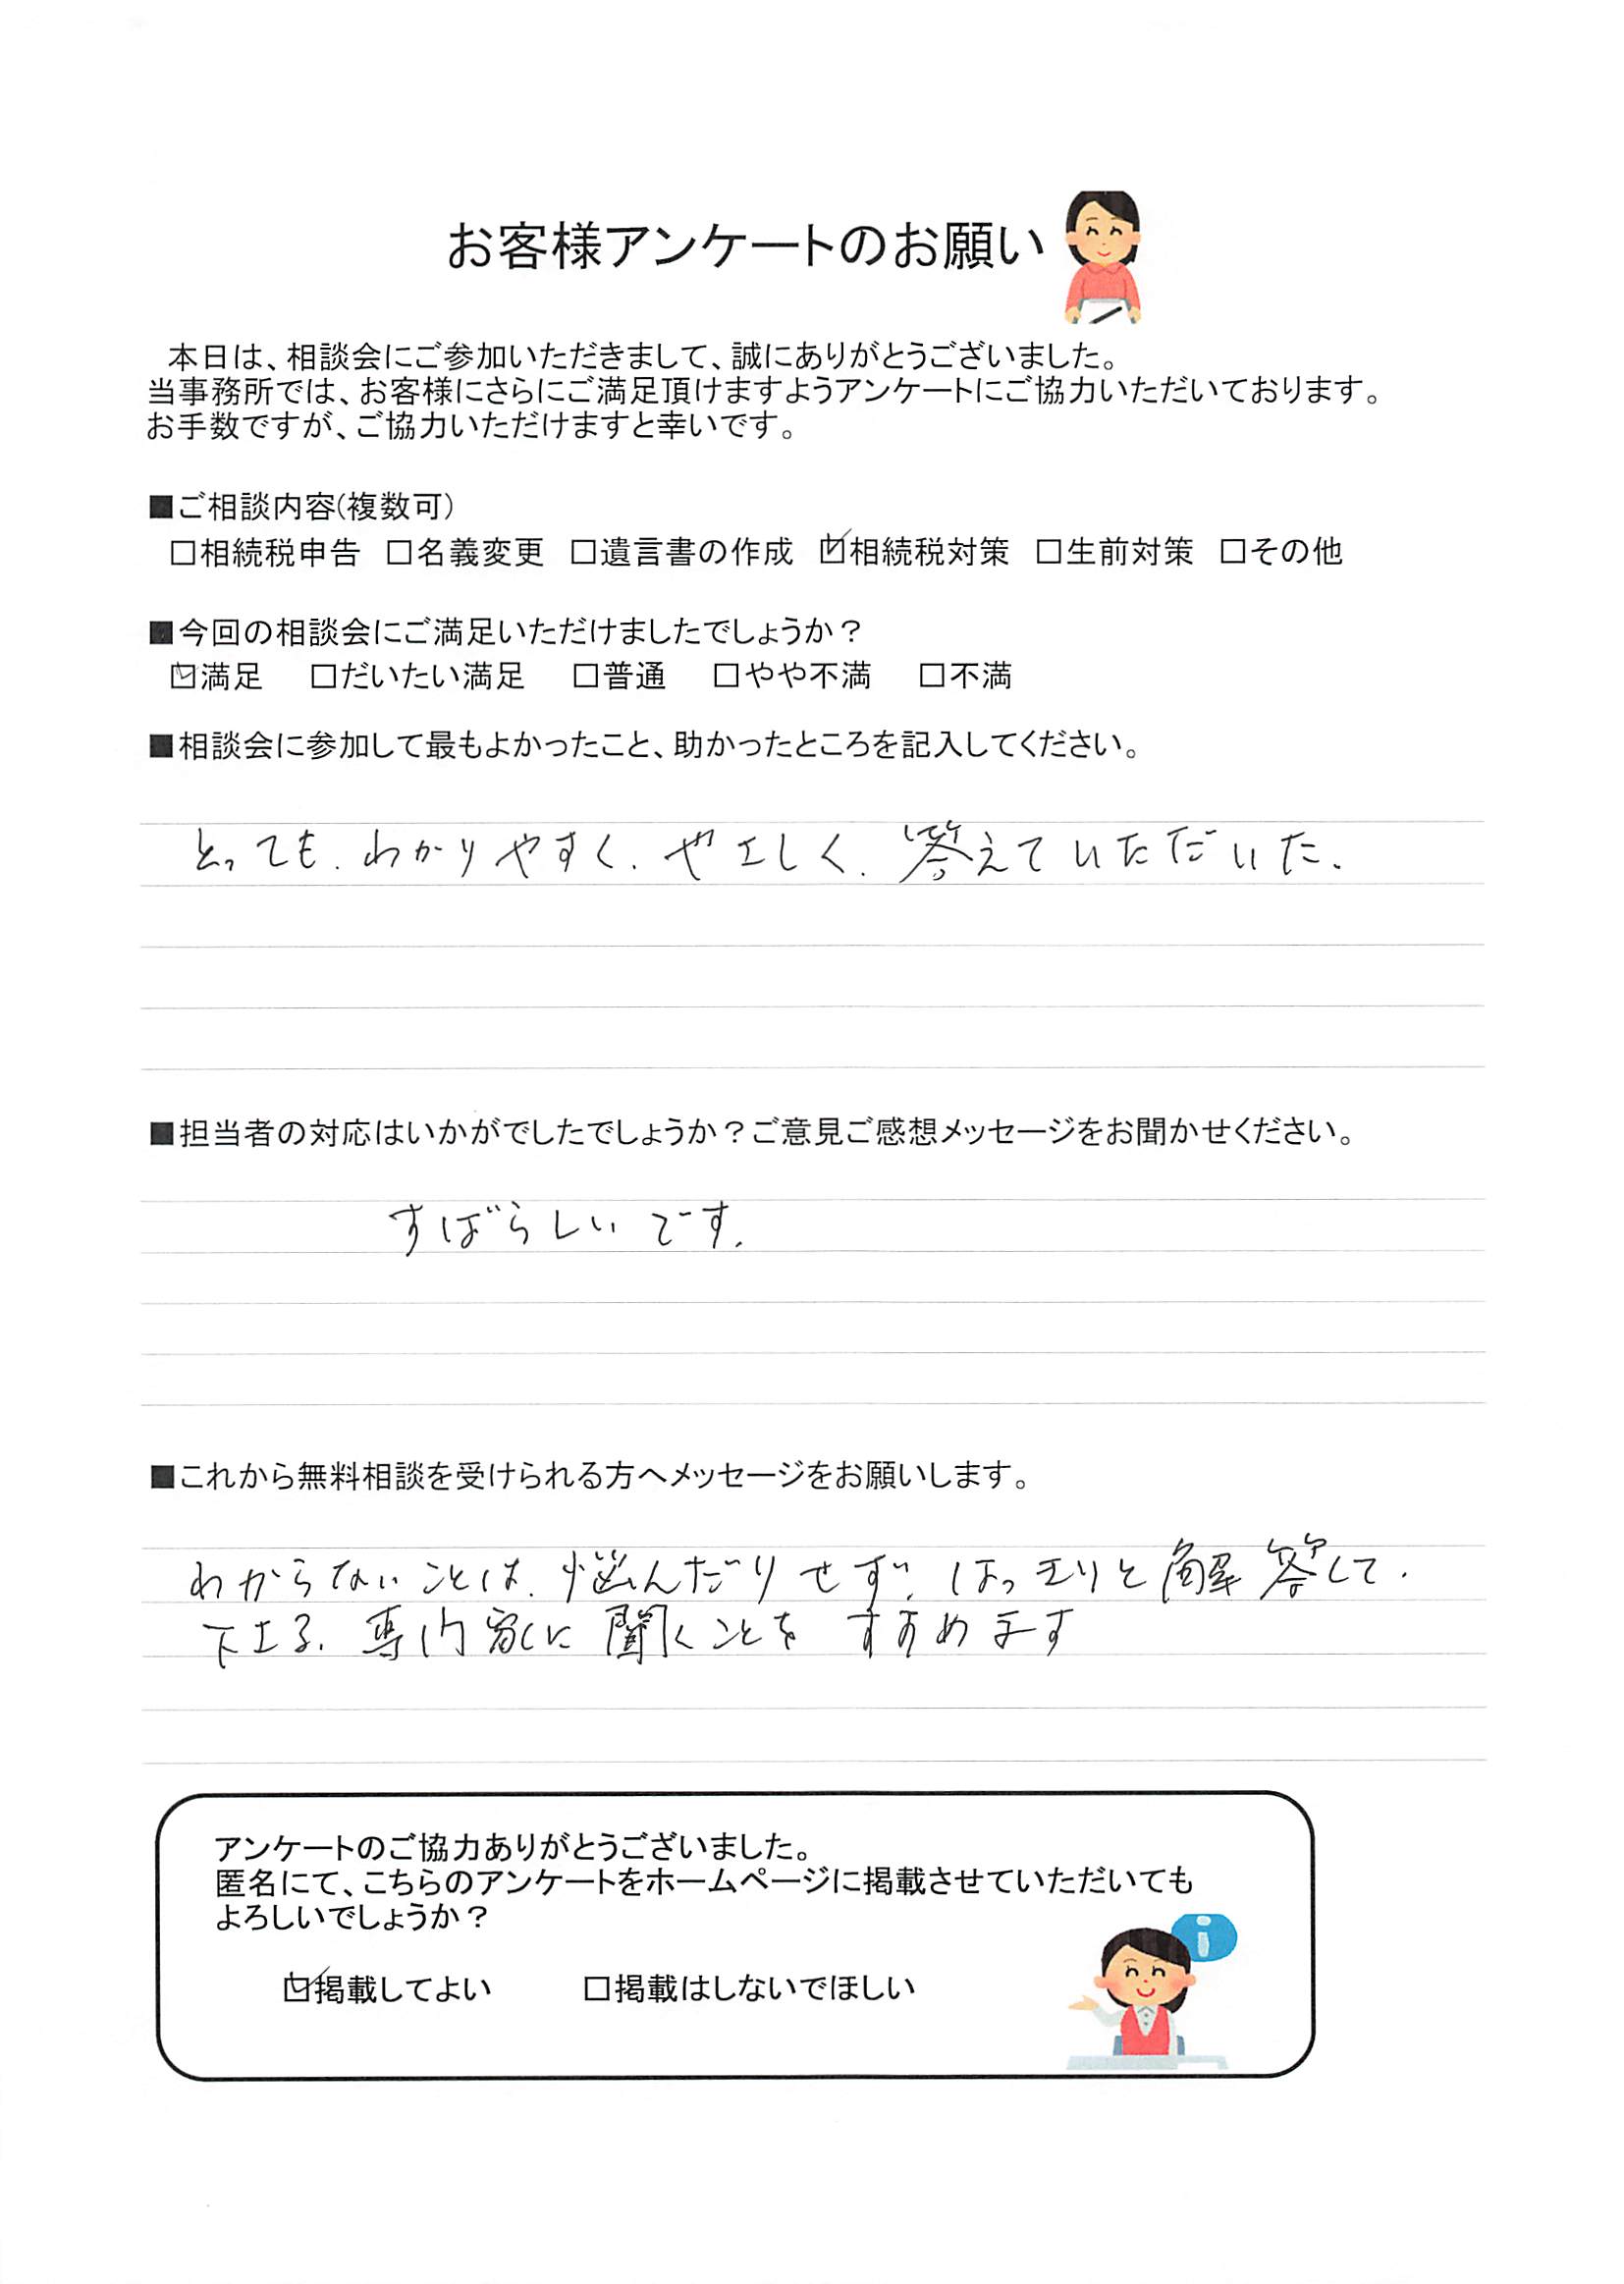 お客様アンケートのお願い
本日は、相談会にご参加いただきまして、誠にありがとうございました。
当事務所では、お客様にさらにご満足頂けますようアンケートにご協力いただいております。
お手数ですが、ご協力いただけますと幸いです。
■ご相談内容(複数可)
□相続税申告 □名義変更 □遺言書の作成 ☑相続税対策 □生前対策 □その他
■今回の相談会にご満足いただけましたでしょうか?
☑満足 □だいたい満足 □普通 □やや不満 □不満
■相談会に参加して最もよかったこと、助かったところを記入してください。
とっても、わかりやすく、やさしく、答えていただいた、
■担当者の対応はいかがでしたでしょうか?ご意見ご感想メッセージをお聞かせください。
すばらしいです、
■これから無料相談を受けられる方へメッセージをお願いします。
わからないことは、悩んだりせず、はっきりと解答して、
下さる、専門家に聞くことをすすめます
アンケートのご協力ありがとうございました。
匿名にて、こちらのアンケートをホームページに掲載させていただいても
よろしいでしょうか?
☑掲載してよい □掲載はしないでほしい